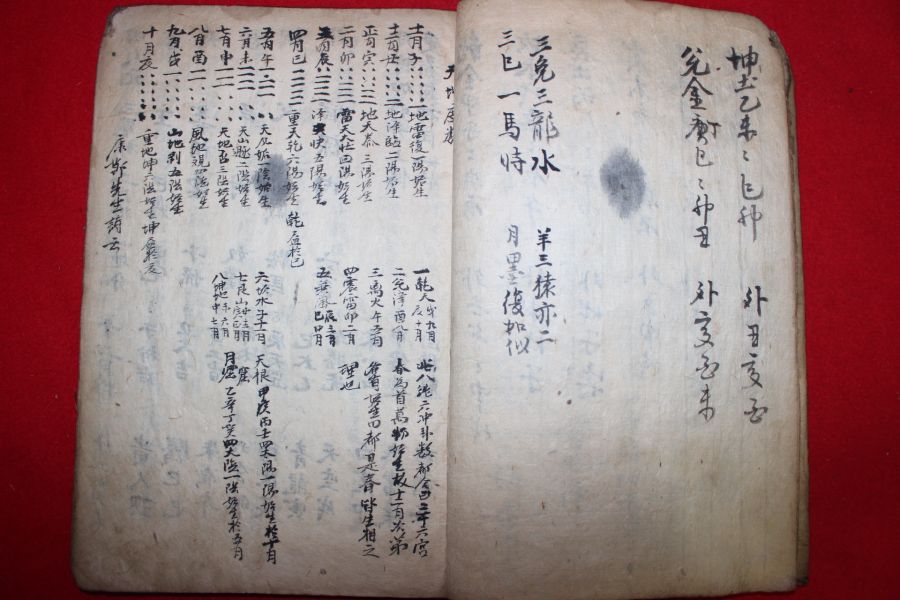 坤土乙未 巳卯 外丑亥酉
兌金 巳 卯丑 外亥酉未
三兎三龍水 羊三猿亦二
三巳一馬時 月黑復如似
十一月子 地雷復一陽始生
十二月丑 地澤臨二陽始生
正月寅 地天泰三陽始生
二月卯 雷天大壯四陽始生
三月辰 澤天夬五陽始生
四月巳 重天乾六陽始生 乾 於巳
五月午 天風姤一陰始生
六月未 天山遯二陰始生
七月申 天地否三陰始生
八月酉 風地觀四陰始生
九月戌 山地剝五陰始生
十月亥 重地坤六陰始生坤 於亥
康節先生詩云
一乾天戌九月亥十月
二兌澤酉八月
三离火午五月
四震雷卯二月
五巽風辰三月巳四月
六坎水子十一月
七艮山丑十二月寅正月
八坤地未六月申七月
此八 六冲卦數 三十六宮
春爲首萬物始生故十一月次第
始生 都是春 生相之
理也
天根 甲庚丙壬 陽一陽始生於十一月
月窟 乙辛丁癸四 陰一陰始生於五月